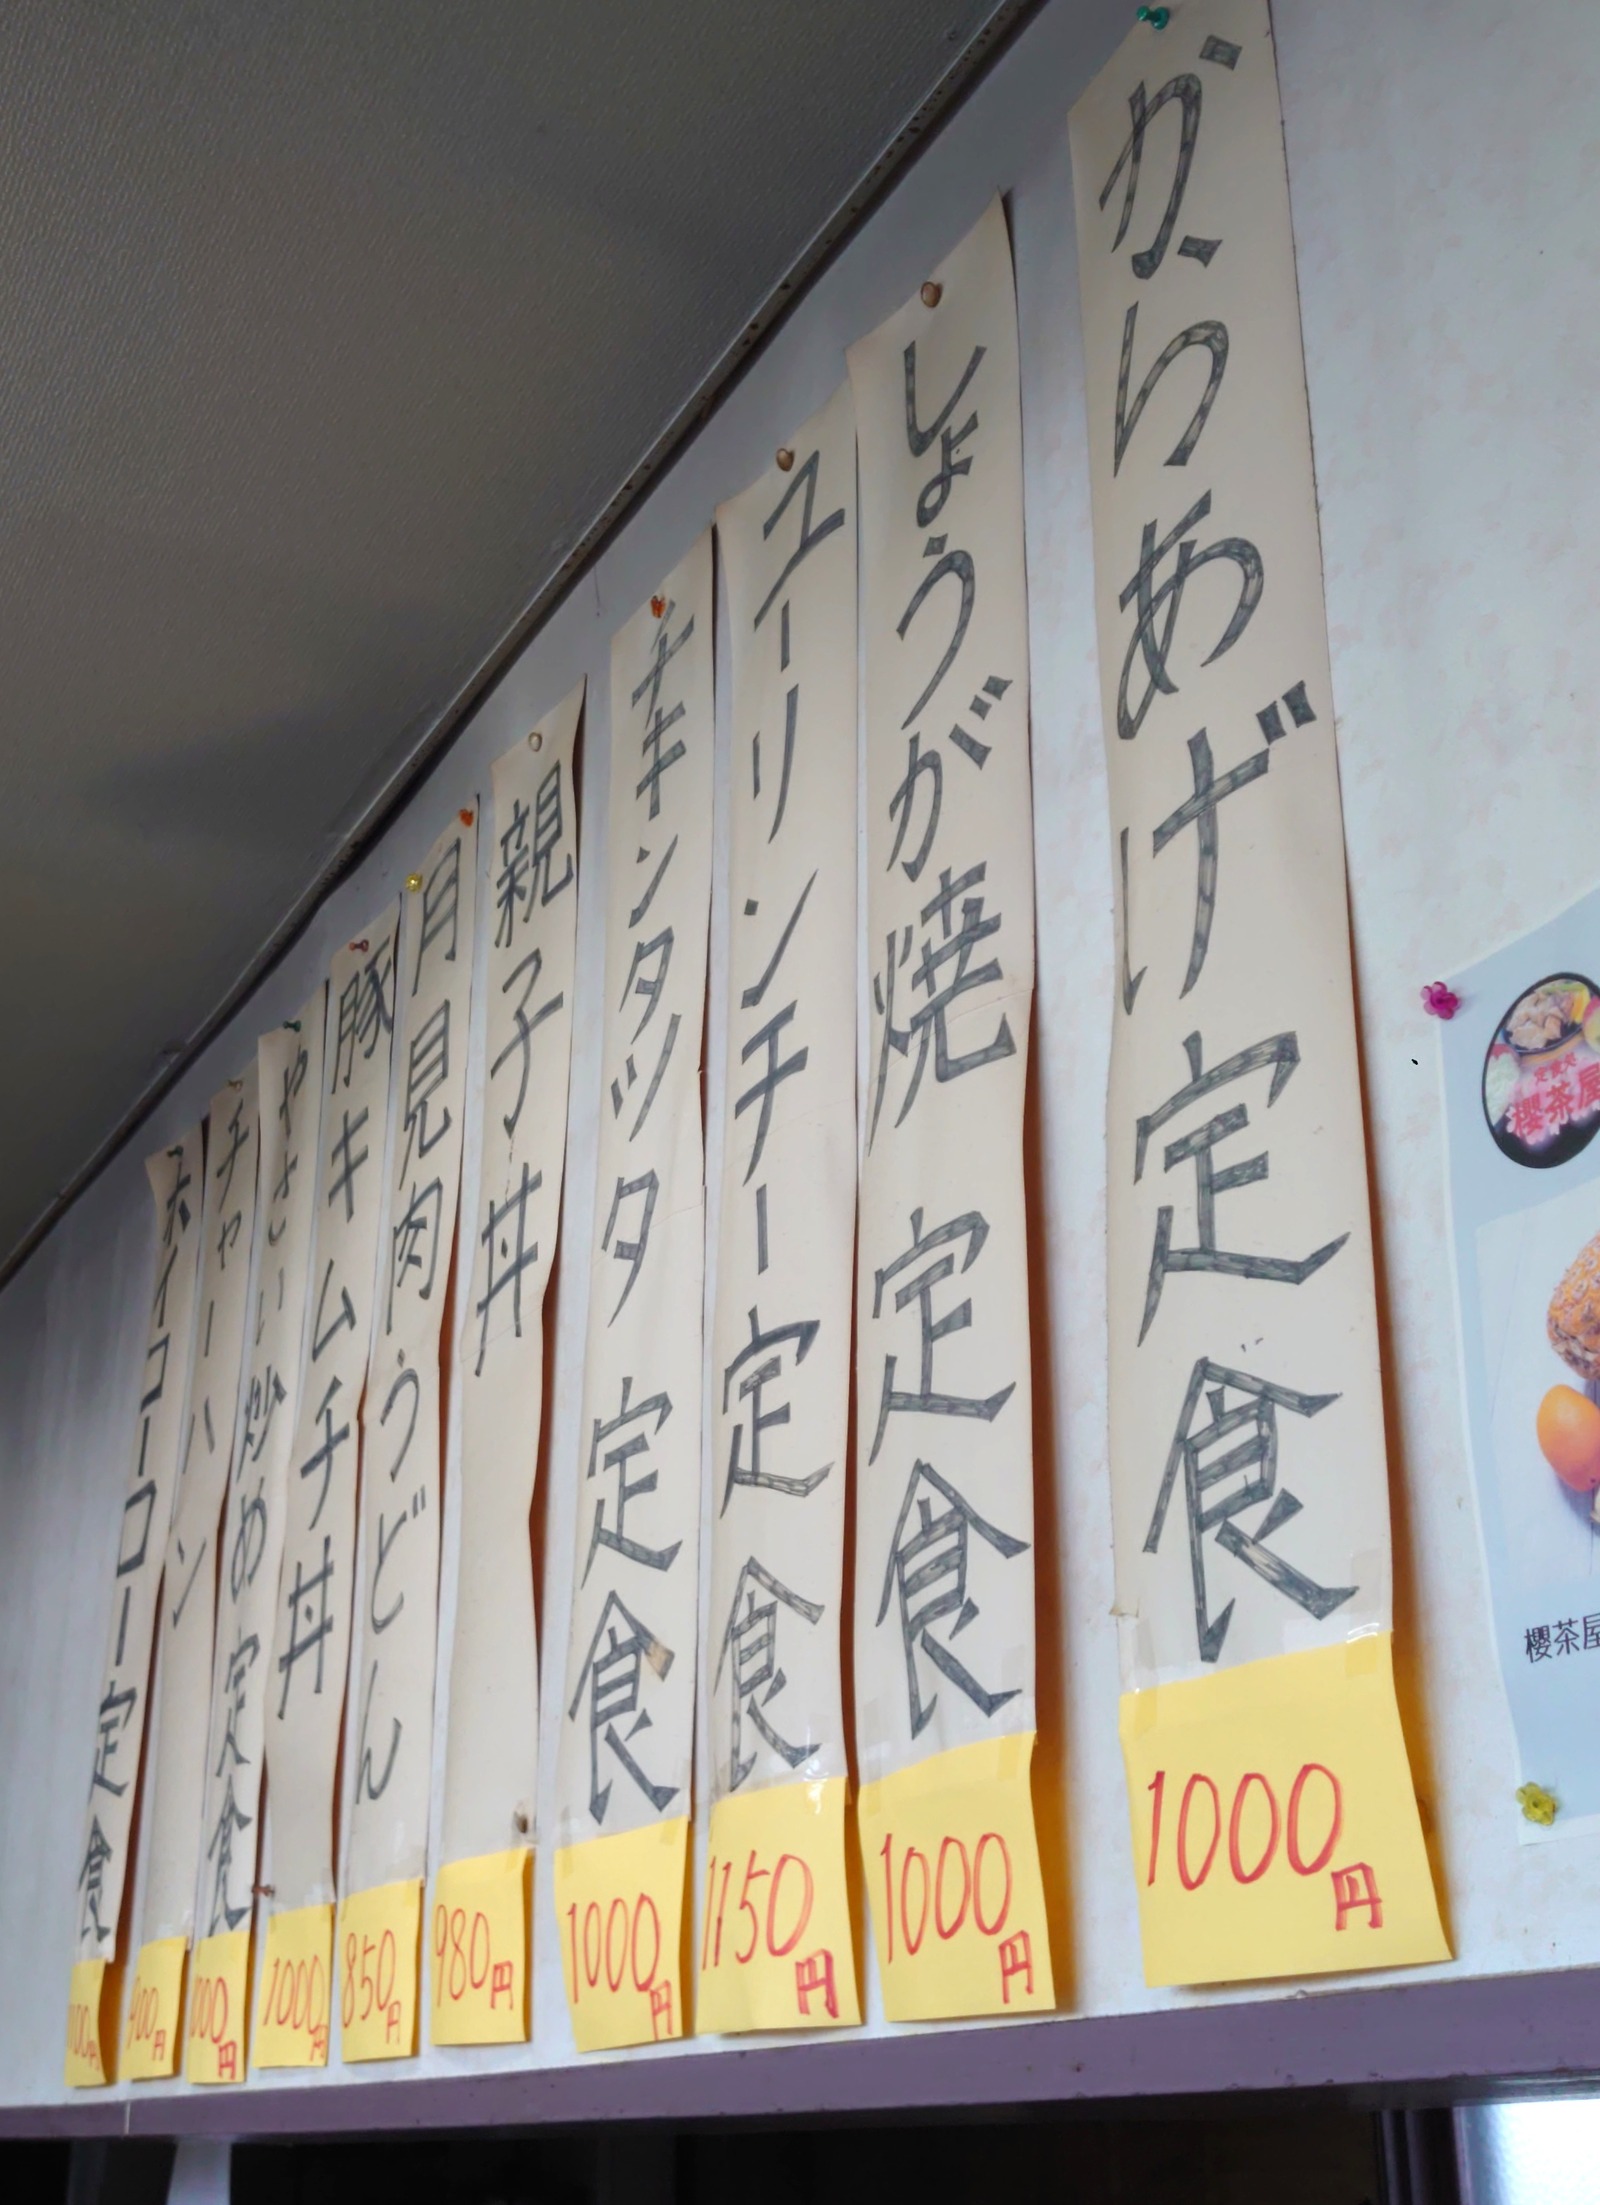 からあげ定食
1000円
しょうが焼定食
1000円
ユーリンチー定食
1150円
チキンタツタ定食
1000円
親子丼
980円
月見肉うどん
850円
豚キムチ丼
1000円
やさい炒め定食
チャーハン
900円
ホイコーコー定食
定食処
櫻茶屋
櫻茶屋